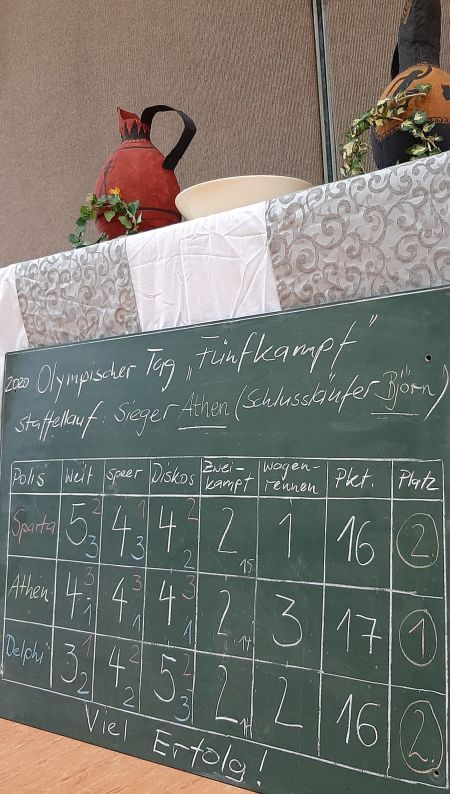 2020 Olympischer Tag „Fünfkampf"
Staffellauf: Sieger Athen (Schlussläufer Björn)
Polis Weit Speer Diskos Zwei-kampf Wagen-rennen Pkt. Platz
Sparta 5 2 3 4 1 3 4 2 2 2 15 1 16 2
Athen 4 3 1 4 3 1 4 3 1 2 14 3 17 1.
Delphi 3 1 2 4 2 2 5 2 3 2 14 2 16 2.
Viel Erfolg!